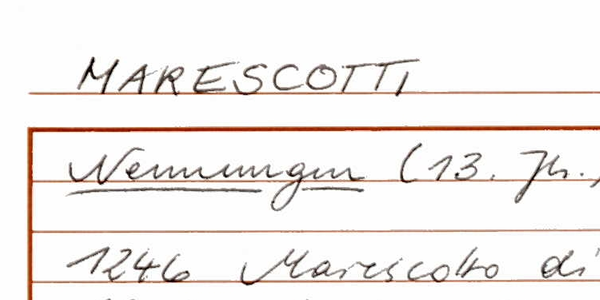 MARESCOTTI
Nennungen (13. Jh.)
1246 Marescotto di